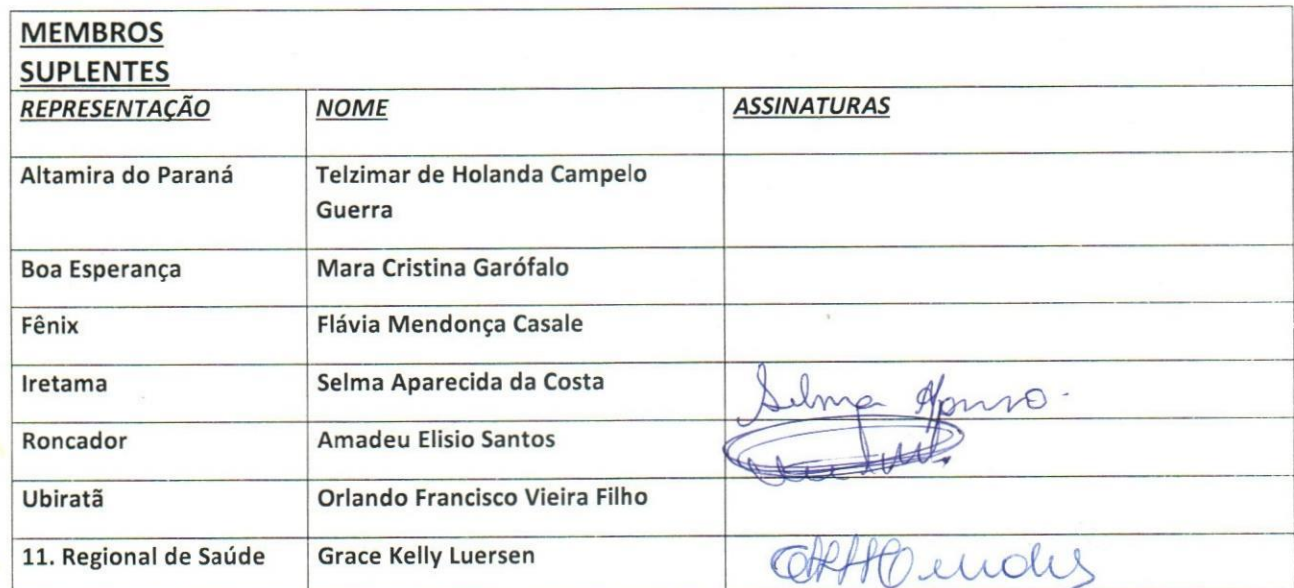 MEMBROS
SUPLENTES
REPRESENTAÇÃO NOME ASSINATURAS
Altamira do Paraná Telzimar de Holanda Campelo
Guerra
Boa Esperança Mara Cristina Garófalo
Fênix Flávia Mendonça Casale
Iretama Selma Aparecida da Costa Selma
Roncador Amadeu Elisio Santos
Ubiratã Orlando Francisco Vieira Filho
11. Regional de Saúde Grace Kelly Luersen